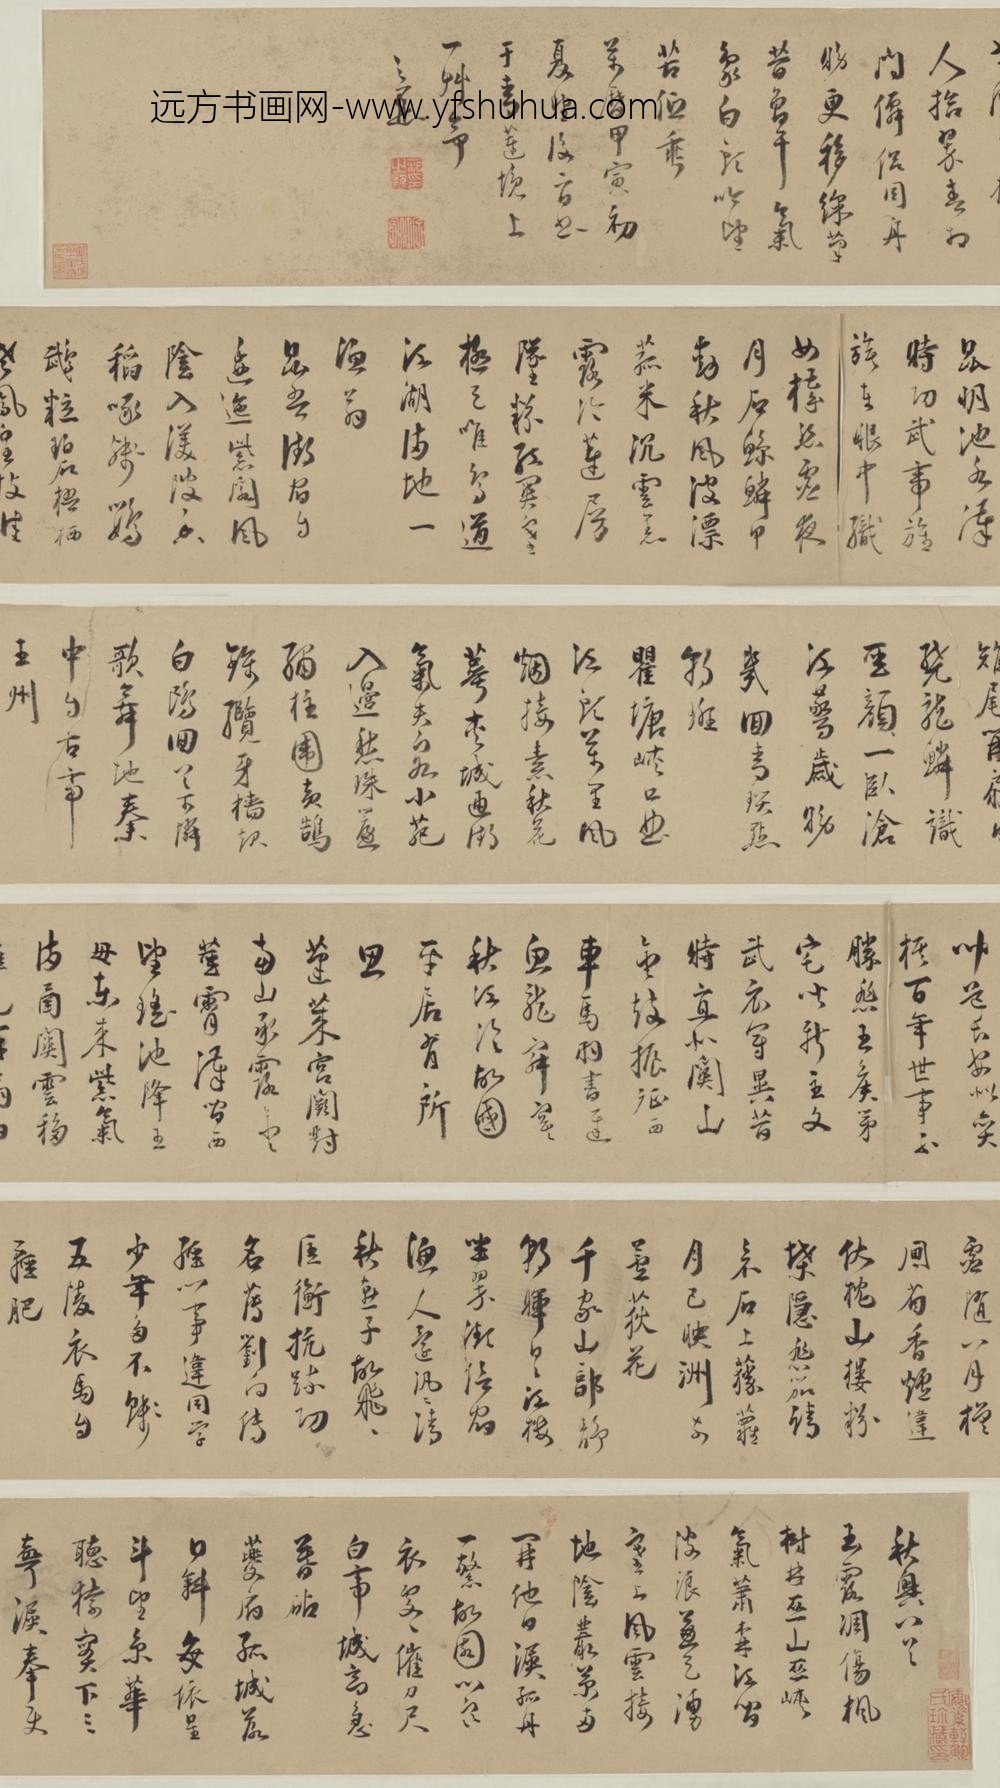 远方书画网-www.yfshuhua.com
秋興八首
玉露凋傷楓
樹林巫山巫峽
氣蕭森江間
波浪兼天湧
塞上風雲接
地陰叢菊兩
開他日淚孤舟
一繫故園心寒
衣處處催刀尺
白帝城高急
暮砧
夔府孤城落
日斜每依
斗望京華
聽猿實下三
聲淚奉使
虛隨八月槎
畫省香爐違
伏枕山樓粉
堞隱悲笳請
看石上藤蘿
月已映洲前
蘆荻花
千家山郭靜
朝暉日日江樓
坐翠微信宿
漁人還汎汎清
秋燕子故飛飛
匡衡抗疏功
名薄劉向傳
經心事違同學
少年多不賤
五陵衣馬自
輕肥
聞道長安似奕
棋百年世事不
勝悲王侯第
宅皆新主文
武衣冠異昔
時直北關山
金鼓振征西
車馬羽書遲
魚龍寂寞
秋江冷故國
平居有所
思
蓬萊宮闕對
南山承露金
莖霄漢間西
望瑤池降王
母東來紫氣
滿函關雲移
雉尾開宮扇日
繞龍鱗識
聖顏一臥滄
江驚歲晚
幾回青瑣點
朝班
瞿塘峽口曲
江頭萬里風
煙接素秋花
萼夾城通御
氣芙蓉小苑
入邊愁珠簾
繡柱圍黃鵠
錦纜牙檣起
白鷗回首可憐
歌舞地秦
中自古帝
王州
昆明池水漢
時功武帝旌
旗在眼中織
女機絲虛夜
月石鯨鱗甲
動秋風波漂
菰米沉雲黑
露冷蓮房
墜粉紅關塞
極天唯鳥道
江湖滿地一
漁翁
昆吾御宿自
逶迤紫閣風
陰入渼陂香
稻啄餘鸚
鵡粒碧梧栖
老鳳皇枝佳
人拾翠春相
問僊侶同舟
晚更移綵筆
昔曾干氣
象白頭吟望
苦低垂
萬曆甲寅初
于青蓮境上